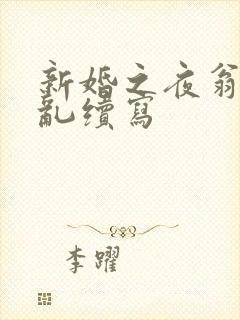 新婚之夜翁
亂續寫
李躍